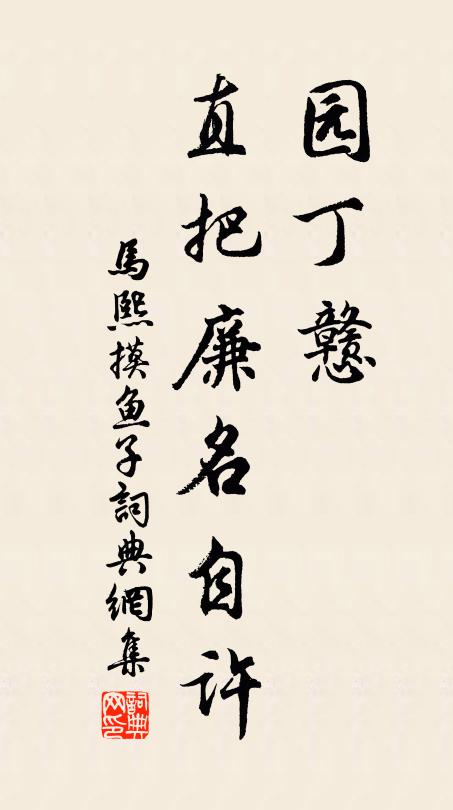 园丁戆
直把廉名自许
馬熙摸魚子詞典網集
詞典网印